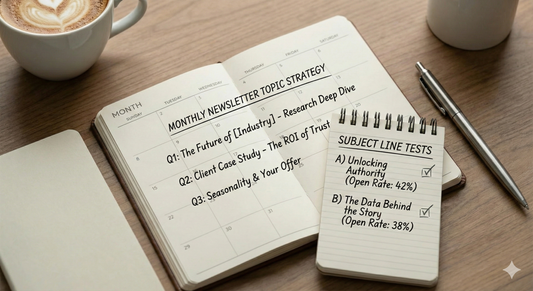 MONTH
Sunday
TUESDAY
WEDNESDAY
FRIDAY
SATURDAY
MONTHLY NEWSLETTER TOPIC STRATEGY
Q1: The Future of [Industry] - Research Deep Dive
Q2: Client Case Study - The ROI of Trust
Q3: Seasonality & Your Offer
22
29
30
31
SUBJECT LINE TESTS
A) Unlocking
Authority
(Open Rate: 42%)
B) The Data Behind
the Story
(Open Rate: 38%)